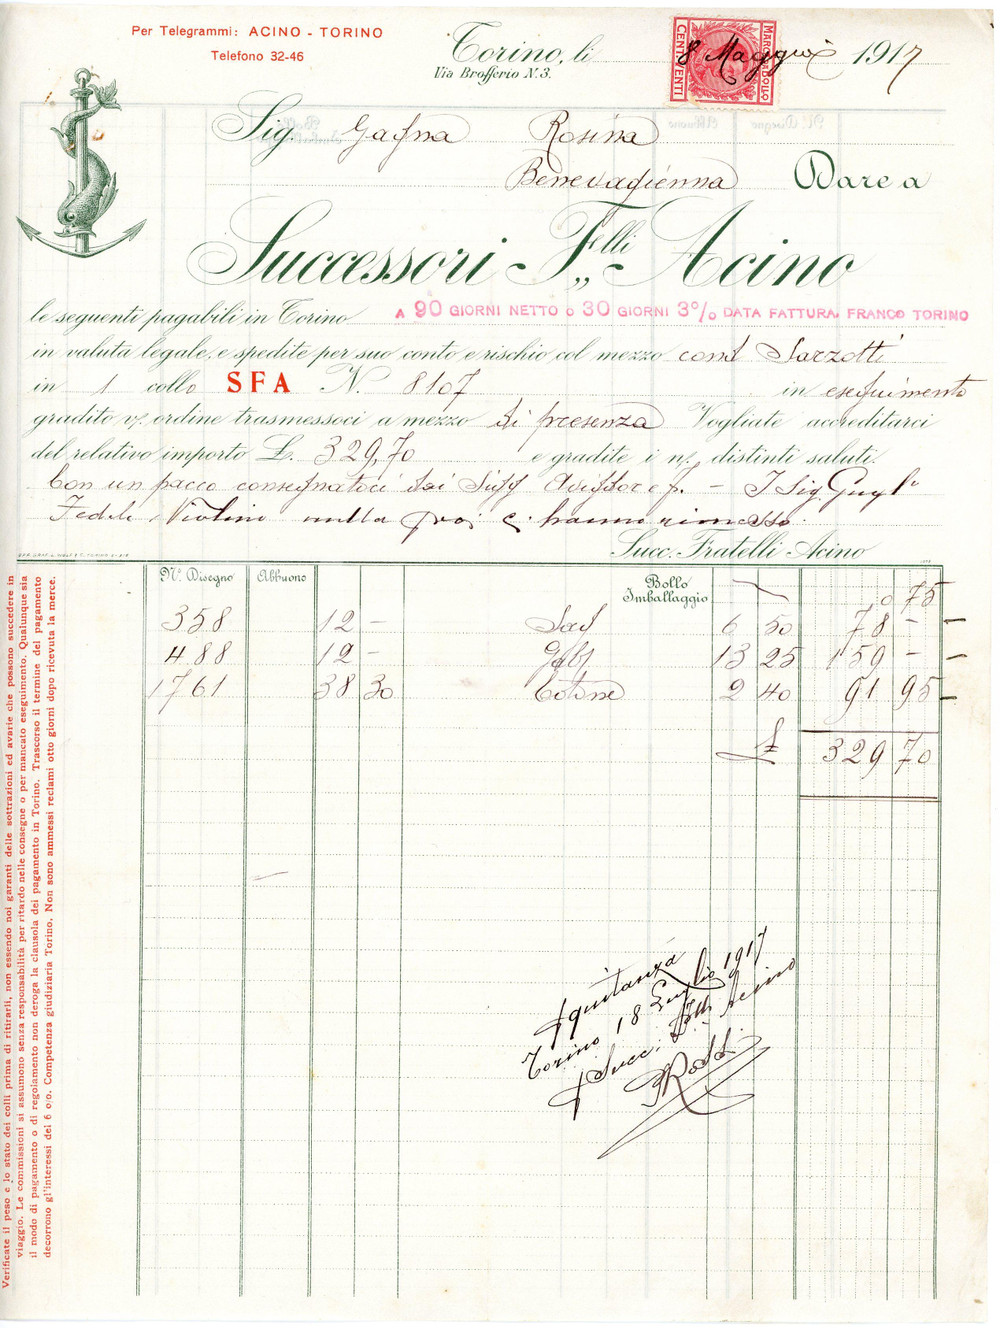 Per Telegrammi: ACINO - TORINO
Telefono 32-46
Torino, li 8 Maggio 1917
Via Brofferio N. 3.
MARCA DA BOLLO
CENT. VENTI
Sig. Gagna Rosina
Benevagienna Dare a
Successori F.lli Acino
le seguenti pagabili in Torino A 90 GIORNI NETTO O 30 GIORNI 3% DATA FATTURA. FRANCO TORINO
in valuta legale, e spedite per suo conto e rischio col mezzo cond Sarzotti
in 1 collo SFA N. 8107 in eseguimento
gradito v/. ordine trasmessoci a mezzo di presenza Vogliate accreditarci
del relativo importo L. 329,70 e gradite i n/. distinti saluti.
Con un pacco consegnatoci dai Sigg Avigdor e f. - I Sig. Gugl.
Fedele Violino nulla poi ci hanno rimesso.
Succ. Fratelli Acino
N.° Disegno Abbuono Bollo
Imballaggio 0 75
358 12 - 6 50 78 -
488 12 - 13 25 159 -
1761 38 30 Cotone 2 40 91 95
£ 329 70
quitanza
Torino 18 Luglio 1917
Succ. F.lli Acino
Rossi
Verificate il peso e lo stato dei colli prima di ritirarli, non essendo noi garanti delle sottrazioni ed avarie che possono succedere in
viaggio. Le commissioni si assumono senza responsabilità per ritardo nelle consegne o per mancato eseguimento. Qualunque sia
il modo di pagamento o di regolamento non deroga la clausola del pagamento in Torino. Trascorso il termine del pagamento
decorrono gl'interessi del 6 o/o. Competenza giudiziaria Torino. Non sono ammessi reclami otto giorni dopo ricevuta la merce.